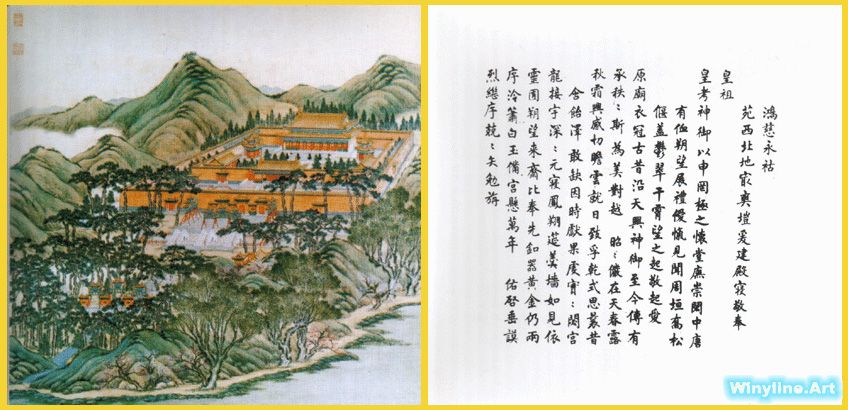 鴻慈永祜
苑西北地㝡爽塏爰建殿寢敬奉
皇祖
皇考神御以申罔極之懷堂廡崇閎中唐
有侐朔望展禮僾愾見聞周垣喬松
偃蓋鬱翠干霄望之起敬起愛
原廟衣冠古昔沿天興神御至今傳有
承秩〻斯為美對越 昭〻儼在天春露
秋霜興感切瞻雲就日致孚乾式思裘昔
含飴澤敢缺因時獻果虔實〻閟宮
龍接宇深〻元寢鳳翔蓮羹墻如見依
靈囿朔望來齋比奉先釦器黃金仍兩
序泠簫白玉備宮懸萬年 佑啟垂謨
烈繼序兢〻矢勉旃
Winyline.Art